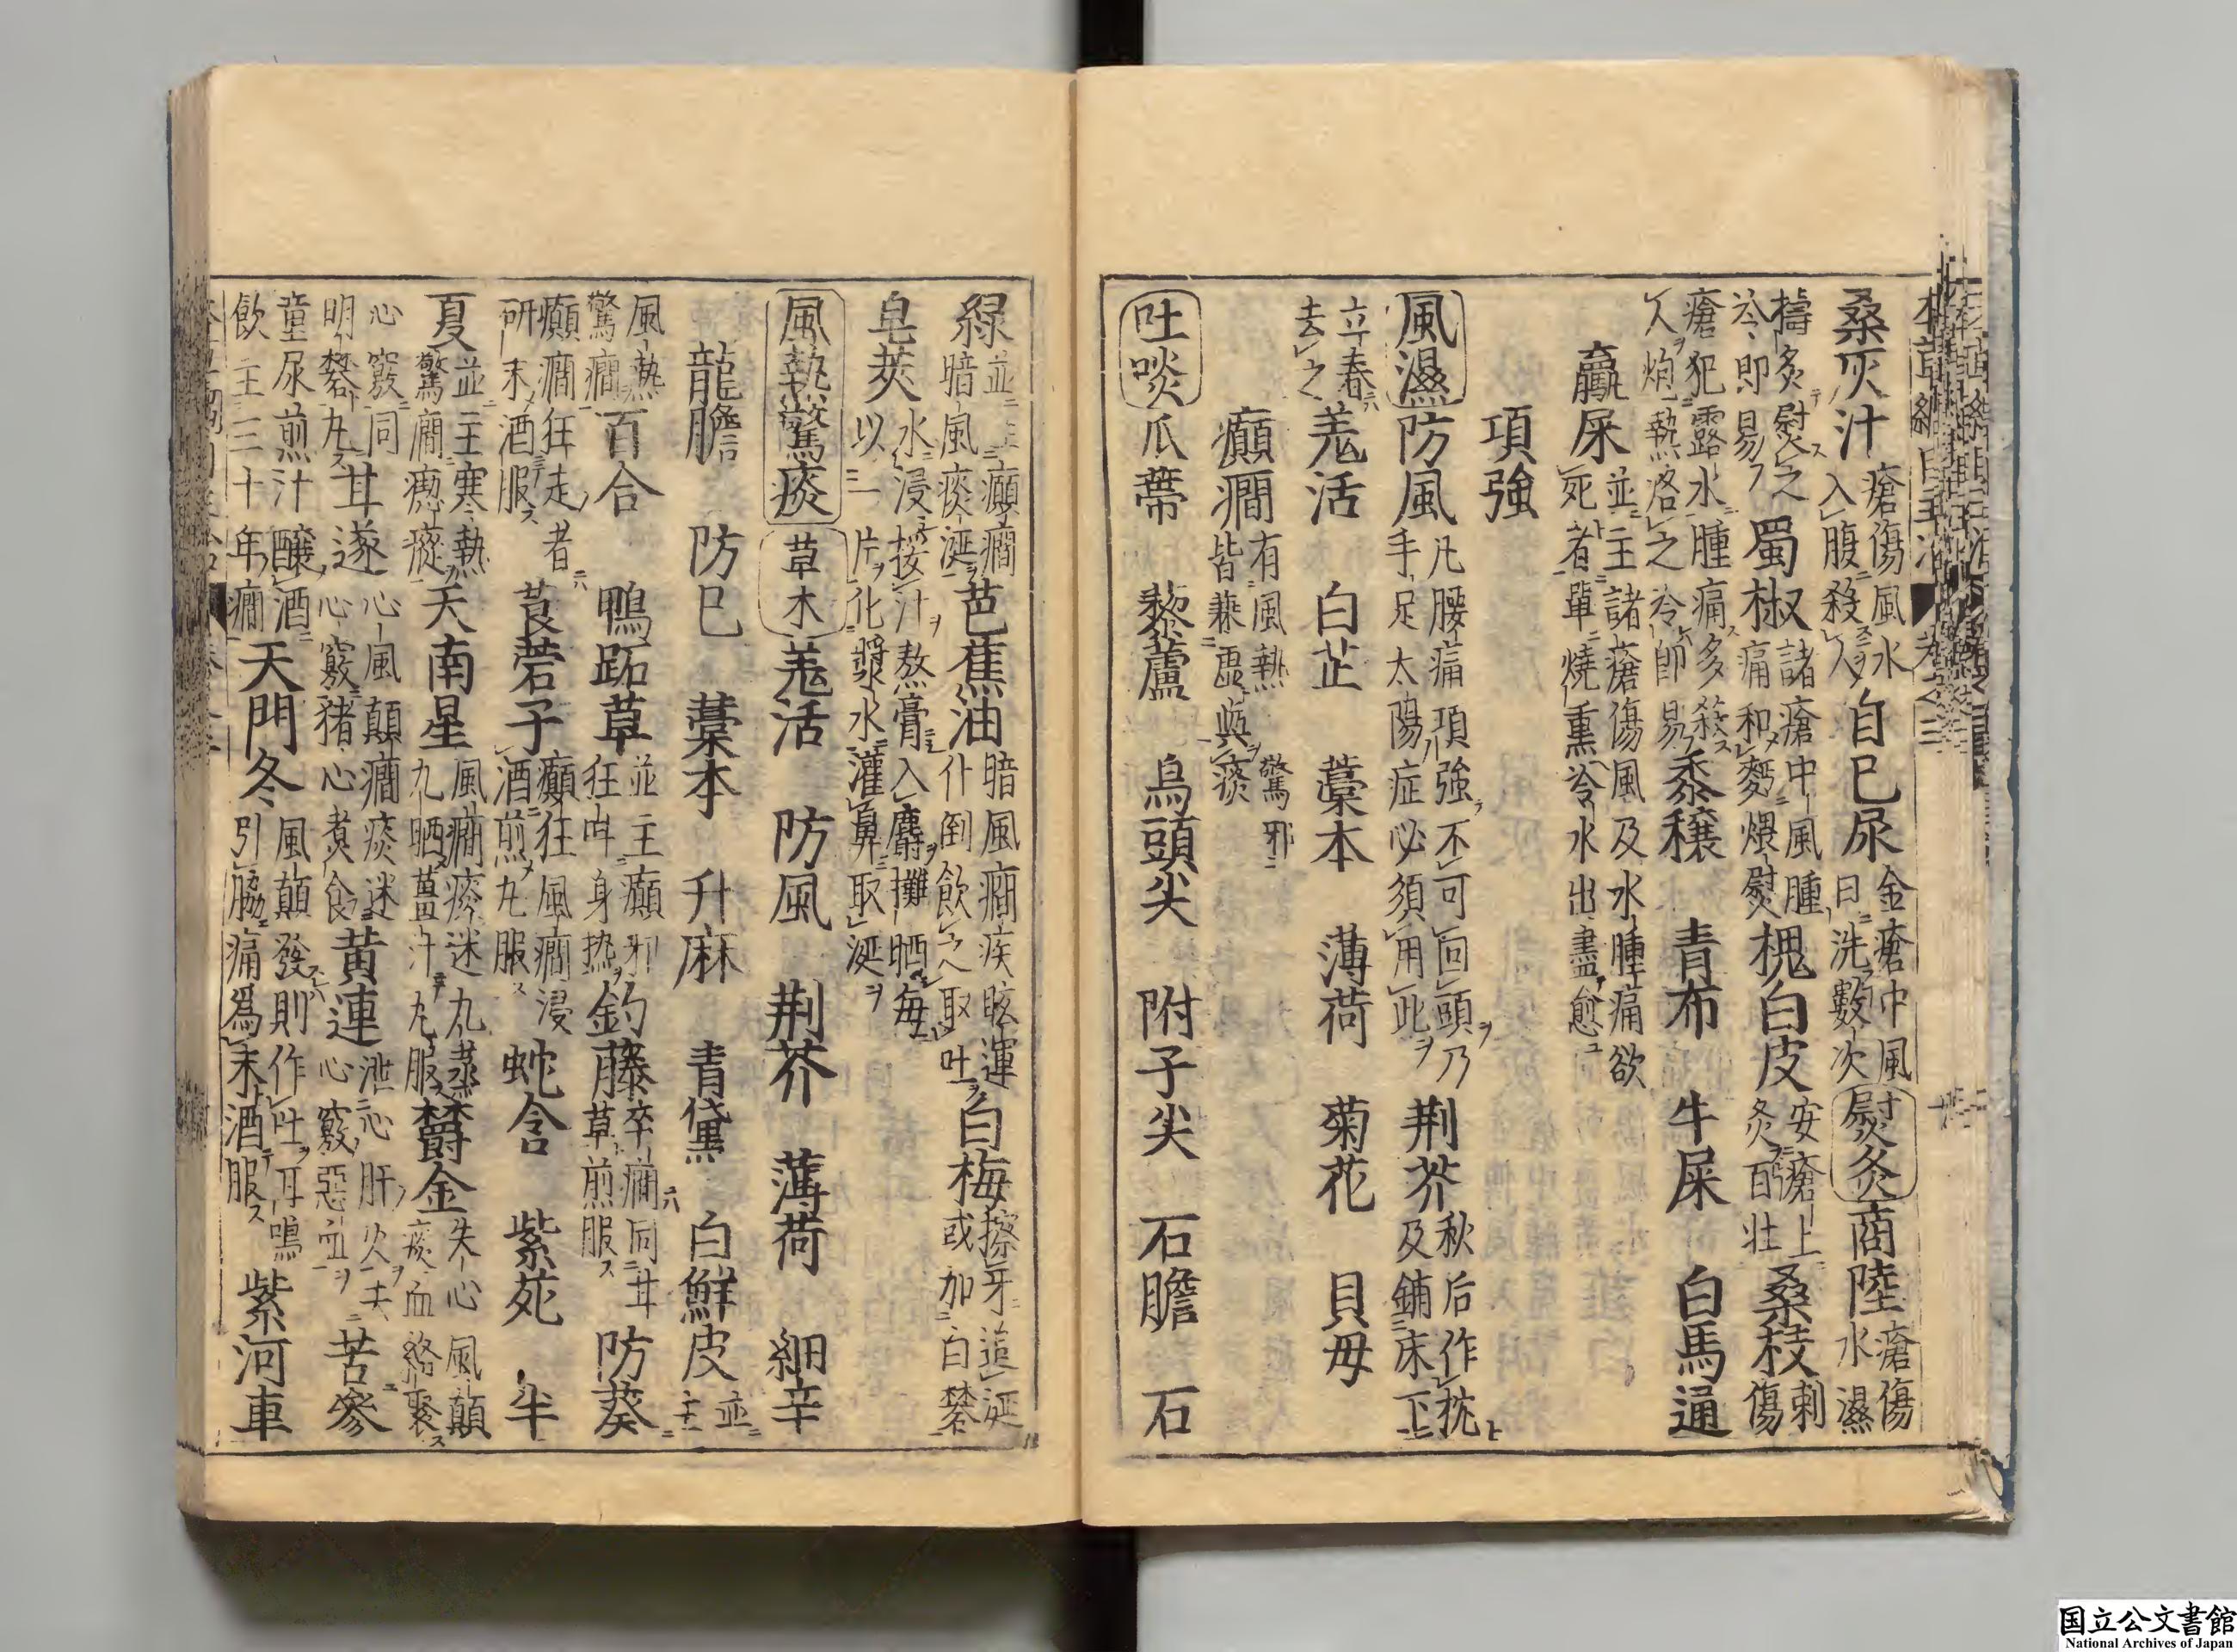 桑灰汁瘡傷風水入腹殺人 自己尿金瘡中風日洗數次 熨灸 商陸瘡傷水濕
擣炙熨之冷即易 蜀椒諸瘡中風腫痛和麪煨熨 槐白皮安瘡上灸百壯 桑枝刺傷
瘡犯露水腫痛多殺人炮熱烙之冷即易 黍穰 青布 牛屎 白馬通
驘屎並主諸瘡傷風及水腫痛欲死者單燒熏冷水出盡愈
項強
風濕 防風凡腰痛項強不可回頭乃手足太陽症必須用此 荆芥秋后作枕及鋪床下
立春去之 羗活 白芷 藁本 薄荷 菊花 貝母
癲癇有風熱驚邪皆兼虛與痰
吐啖 瓜蔕 藜蘆 烏頭尖 附子尖 石膽 石
綠並主癲癇暗風痰涎 芭蕉油暗風癇疾眩運仆倒飲之取吐 白梅擦牙追涎或加白礬
皂莢水浸挼汁熬膏入麝攤晒每以一片化漿水灌鼻取涎
風熱驚痰 草木 羗活 防風 荆芥 薄荷 細辛
龍膽 防巳 藁本 升麻 青黛 白鮮皮並主
風熱驚癇 百合 鴨跖草並主癲邪狂叫身热 釣藤卒癇同甘草煎服 防葵
癲癇狂走者研末酒服 莨菪子癲狂風癇浸酒煎丸服 蛇含 紫菀 半
夏並主寒熱驚癇瘛瘲 天南星風癇痰迷九蒸九晒薑汁丸服 鬱金失心風顛痰血絡聚
心竅同明礬丸 甘遂心風顛癇痰迷心竅猪心煮食 黄連泄心肝火去心竅惡血 苦參
童尿煎汁釀酒飲主三十年癇 天門冬風顛發則作吐耳鳴引脇痛爲末酒服 紫河車
国立公文書館
National Archives of Japan